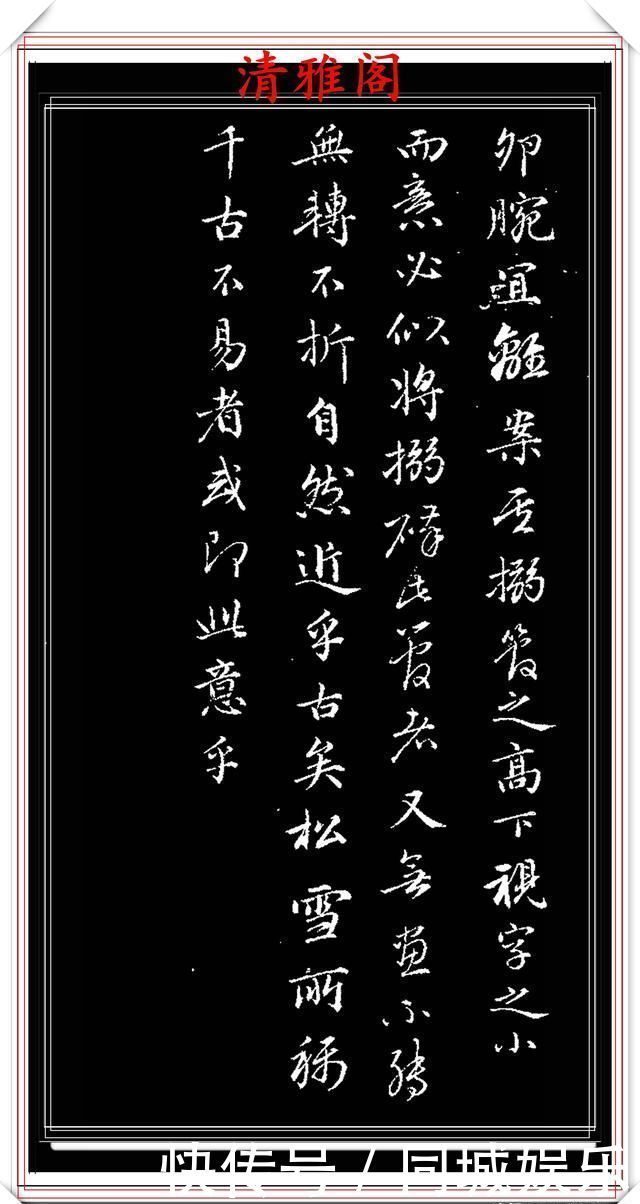 清雅阁
腕離案至搦管之高下視字之小
而意必似將搦碎此管者又無畫不轉
無轉不折自然近乎古矣松雪所稱
千古不易者或即此意乎
快传号 / 同城娱乐